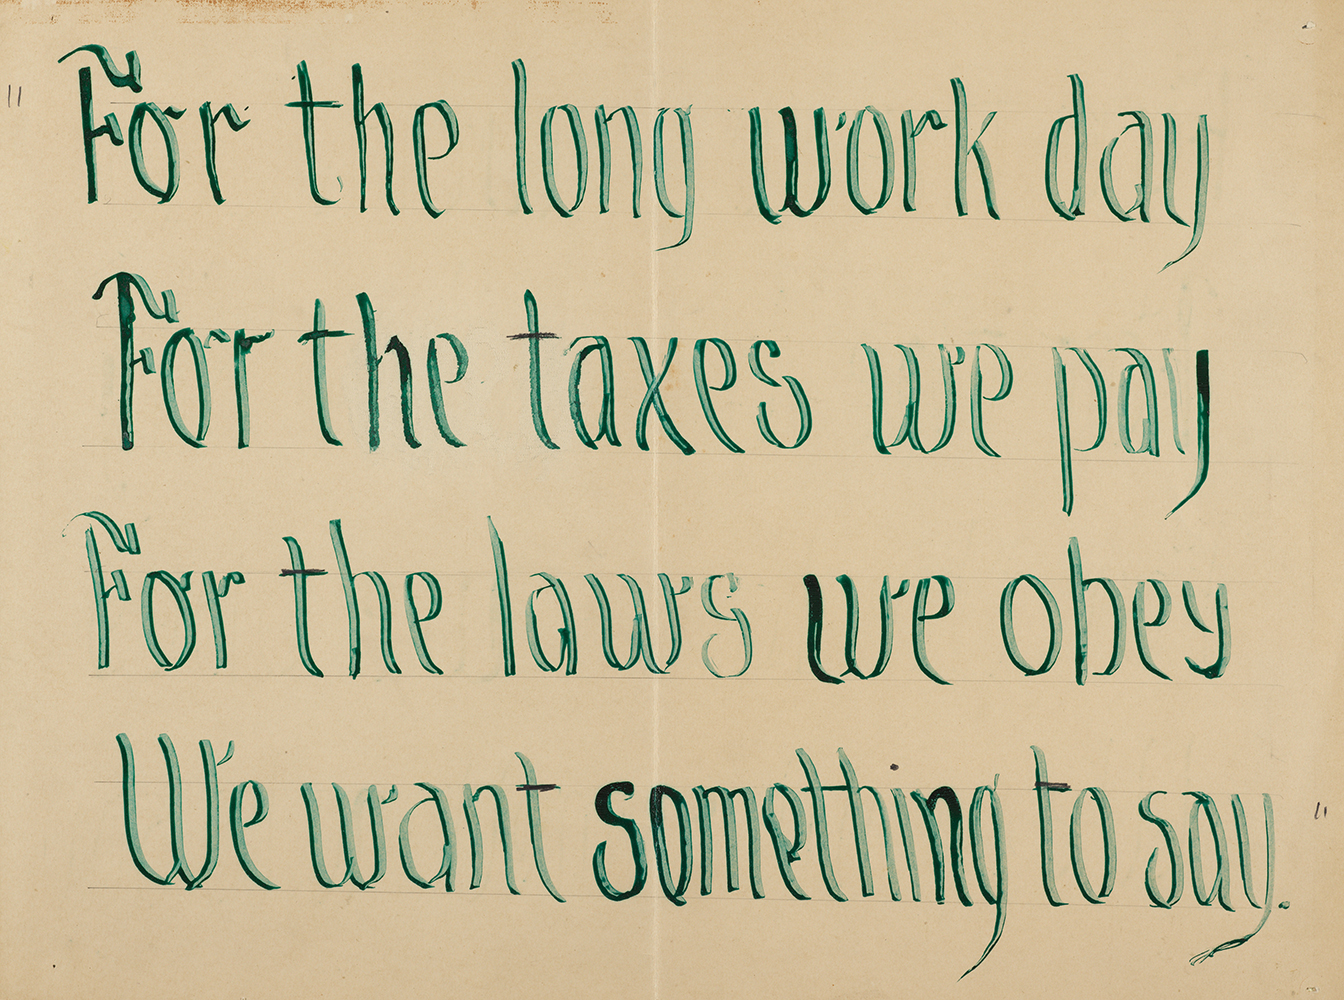 "For the long work day
For the taxes we pay
For the laws we obey
We want something to say."